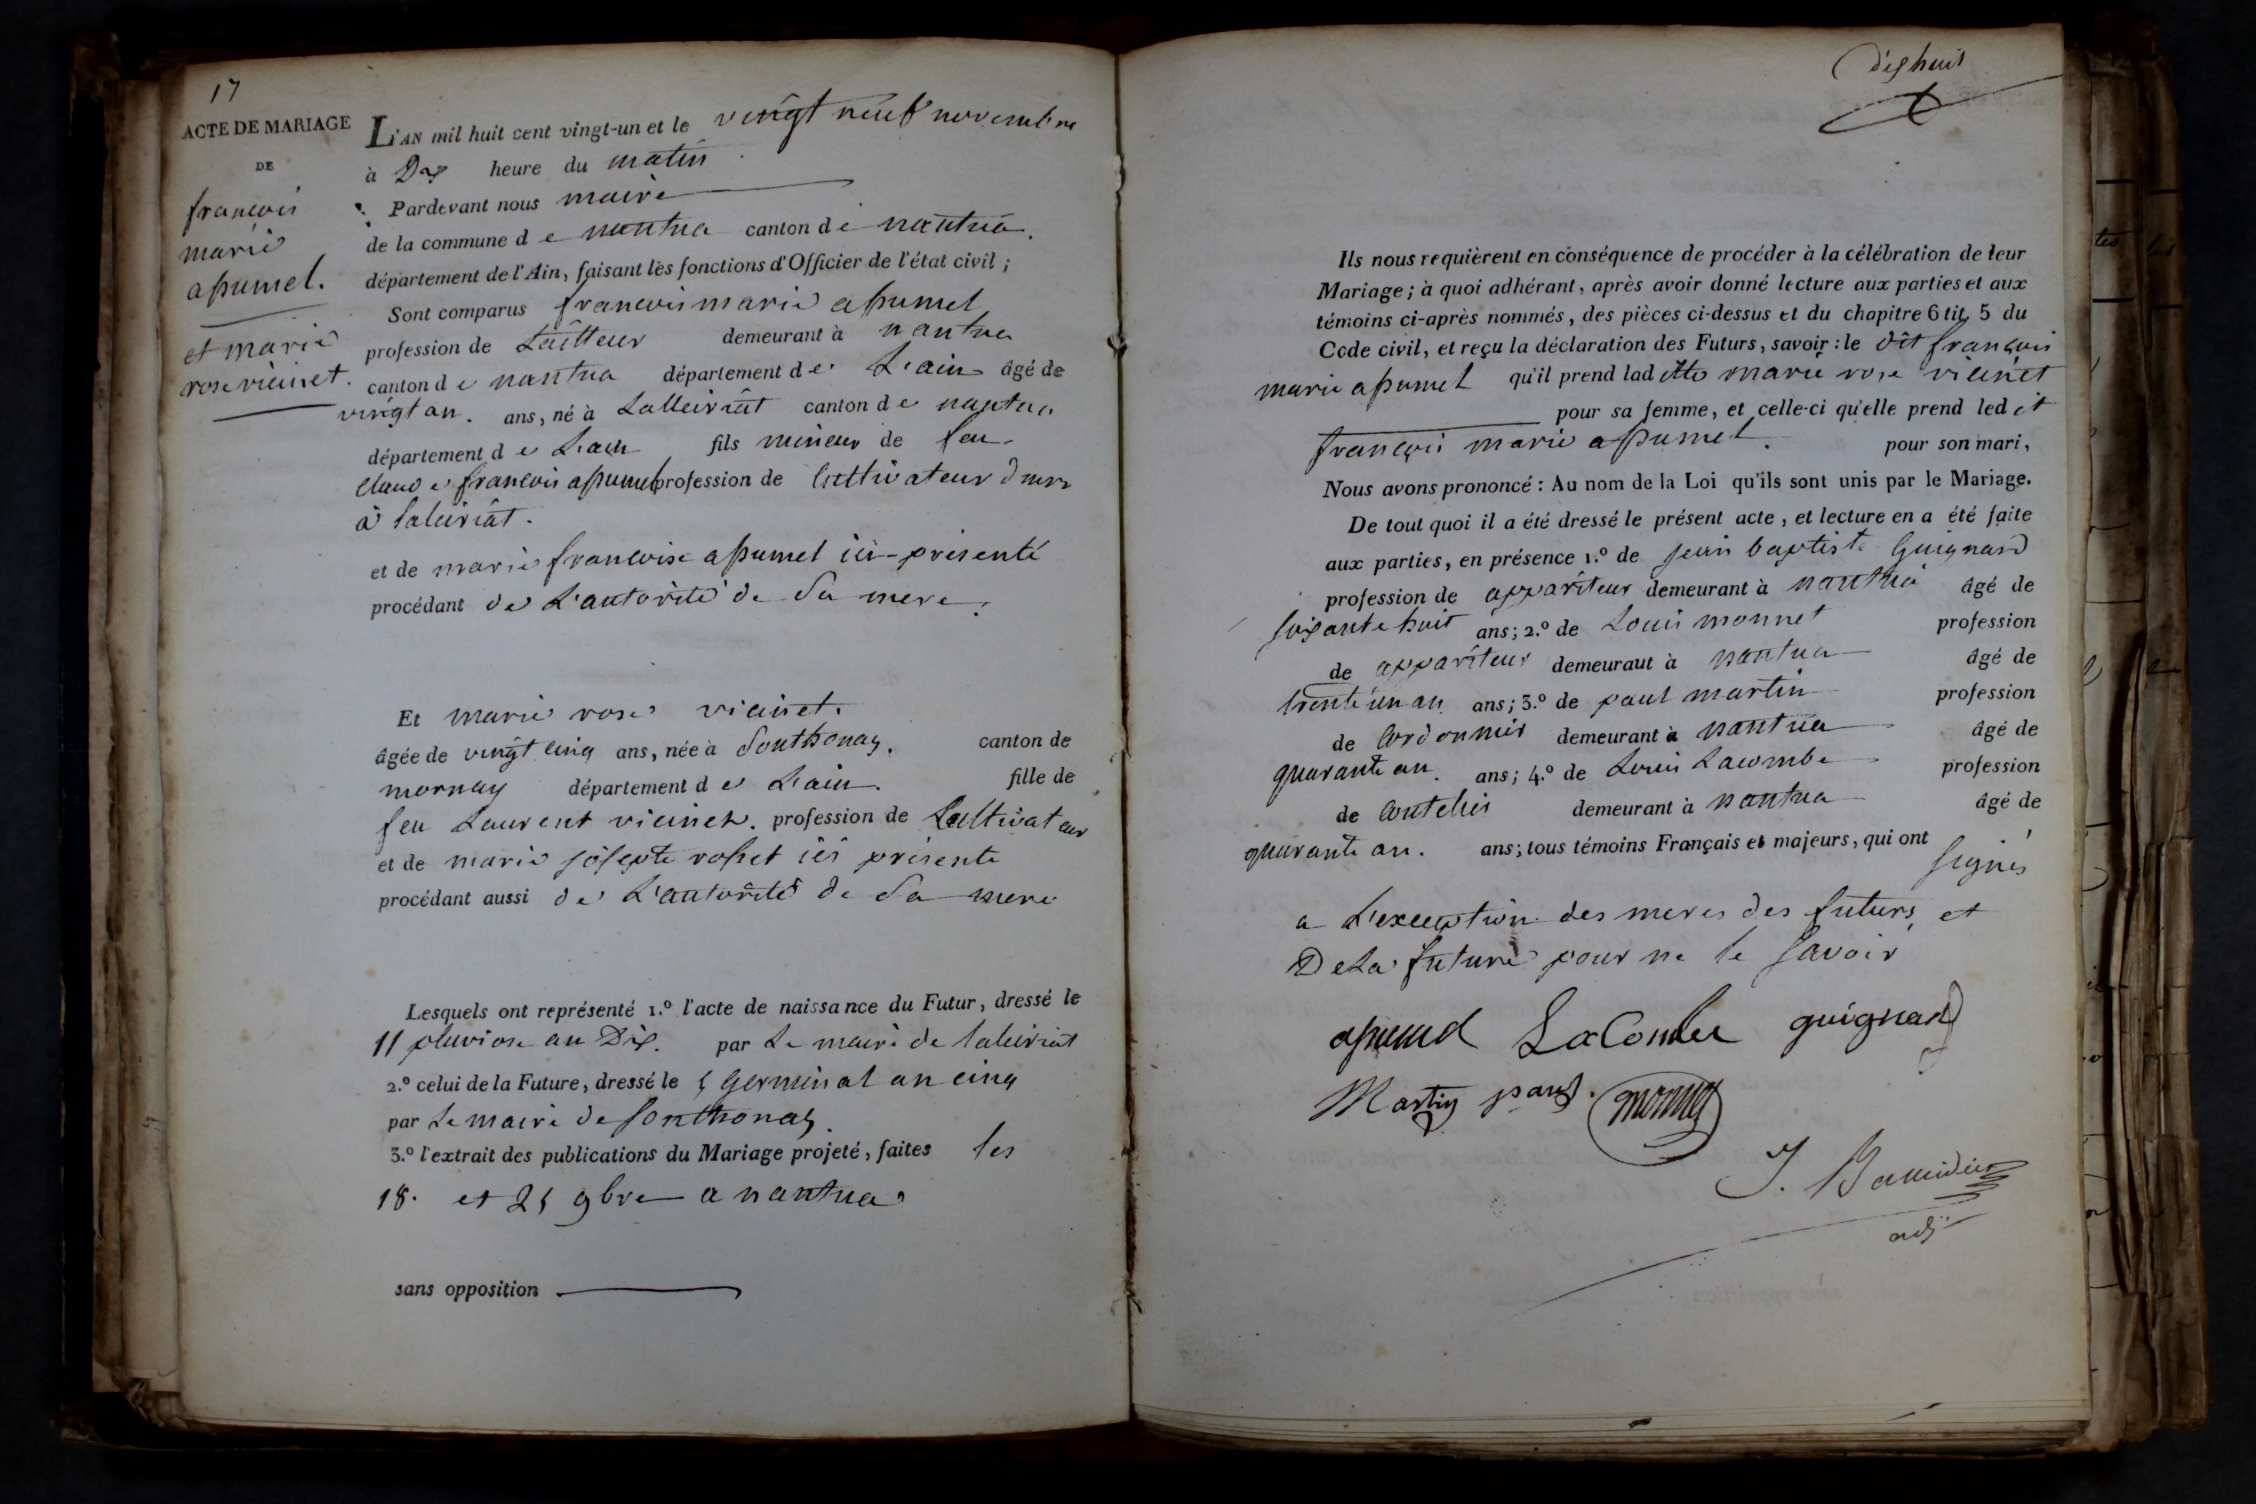 17
ACTE DE MARIAGE
DE
francois
marie
assumel.
et marie
rose vicinet.
L'AN mil huit cent vingt-un et le vingt neuf novembre
à Dix heure du matin
Pardevant nous maire
de la commune de nantua canton de nantua.
département de l'Ain, faisant les fonctions d'Officier de l'état civil ;
Sont comparus francois marie assumel
profession de tailleur demeurant à nantua
canton de nantua département de L'ain âgé de
vingt an. ans, né à Lalleiriat canton de nantua
département de L'ain fils mineur de feu
claude francois assumel profession de Cultivateur
à laleiriat.
et de marie francoise assumel ici-presente
procédant de L'autorité de Sa mere.
Et marie rose vicinet.
âgée de vingt cinq ans, née à Sonthonay. canton de
mornay département de L'ain. fille de
feu Laurent vicinet. profession de Cultivateur
et de marie josepte rosset ici presente
procédant aussi de L'autorité de Sa mere
Lesquels ont représenté 1.° l'acte de naissance du Futur, dressé le
11 pluviose an Dix. par Le maire de laleiriat
2.° celui de la Future, dressé le 5 Germinal an cinq
par Le maire de Sonthonay.
3.° l'extrait des publications du Mariage projeté, faites les
18. et 25 9bre a nantua
sans opposition
dixhuit
Ils nous requièrent en conséquence de procéder à la célébration de leur
Mariage ; à quoi adhérant, après avoir donné lecture aux parties et aux
témoins ci-après nommés, des pièces ci-dessus et du chapitre 6 tit. 5 du
Code civil, et reçu la déclaration des Futurs, savoir : le dit françois
marie assumel qu'il prend laditte marie rose vicinet
pour sa femme, et celle-ci qu'elle prend ledit
françois marie assumel. pour son mari,
Nous avons prononcé : Au nom de la Loi qu'ils sont unis par le Mariage.
De tout quoi il a été dressé le présent acte, et lecture en a été faite
aux parties, en présence 1.° de jean baptiste Guignard
profession de appariteur demeurant à nantua âgé de
soixante huit ans ; 2.° de Louis monnet profession
de appariteur demeuraut à nantua âgé de
trente un an ans ; 3.° de paul martin profession
de Cordonnier demeurant à nantua âgé de
quarante an. ans ; 4.° de Louis Lacombe profession
de Coutelier demeurant à nantua âgé de
quarante an. ans ; tous témoins Français et majeurs, qui ont
signés
a L'exception des meres des futurs et
De La future pour ne le savoir
assumel LaCombe guignard
Martin paul. monnet
J.
adj